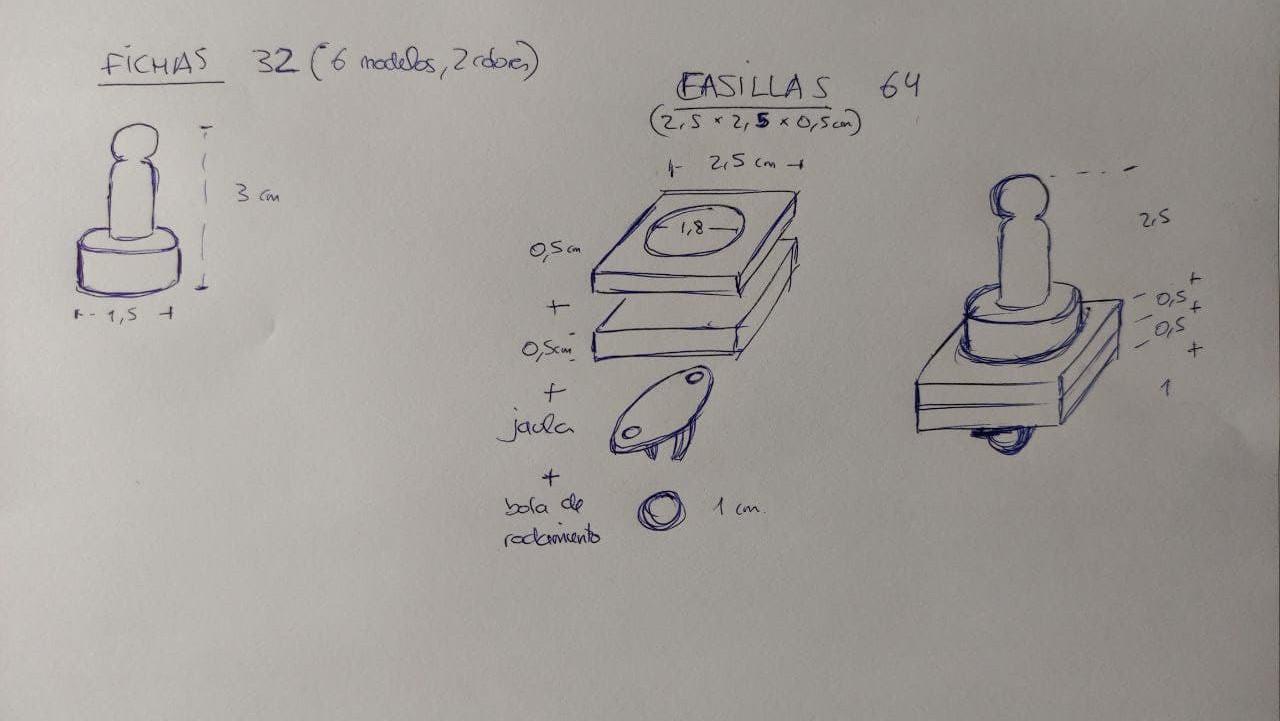 FICHAS 32 (6 modelos, 2 colores)
3 cm
1,5
CASILLAS 64
(2,5 × 2,5 × 0,5 cm)
2,5 cm
1,8
0,5 cm
+
0,5 cm
+
jaula
+
bola de
rodamiento
1 cm.
2,5
+
0,5
+
0,5
+
1